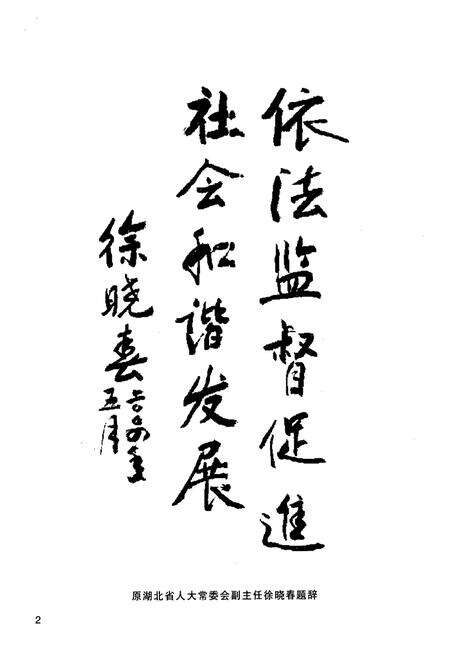 依法监督促進
社会和谐发展
徐晓春
二〇〇四年
五月
原湖北省人大常委会副主任徐晓春题辞
2